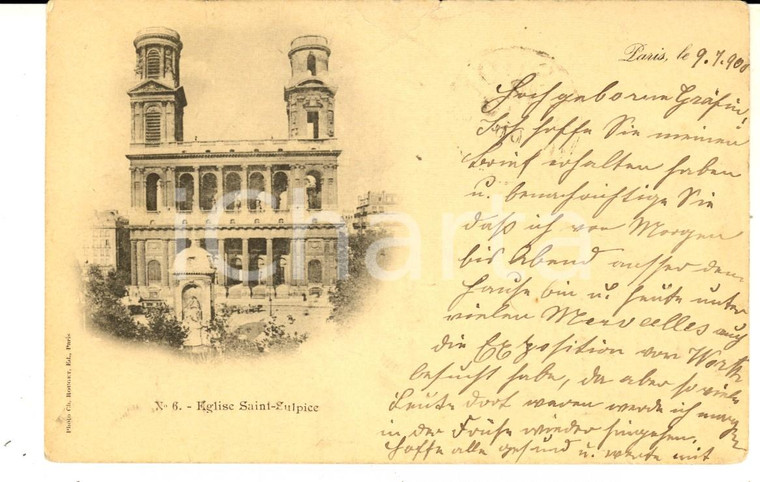 Paris, le 9.7.900
Hochgeborene Gräfin,
Ich hoffe Sie meinen
Brief erhalten haben
u. benachrichtige Sie
daß ich von Morgen
bis Abend ausser dem
Hause bin u. heute unter
vielen Mervcelles auch
die Exposition von Worth
besucht habe, da aber so viele
Leute dort waren werde ich morgen
in der Frühe wieder hingehen.
Hoffe alle gesund u. werte mit
iCharta
No 6. - Eglise Saint-Sulpice
Photo Ch. Ed., Paris